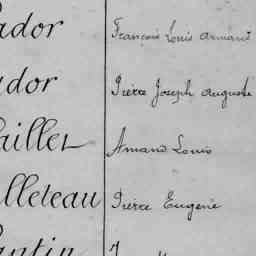 ador François Louis Armand
ador Pierre Joseph Auguste
aillet Amand Louis
lleteau Pierre Eugène
antin